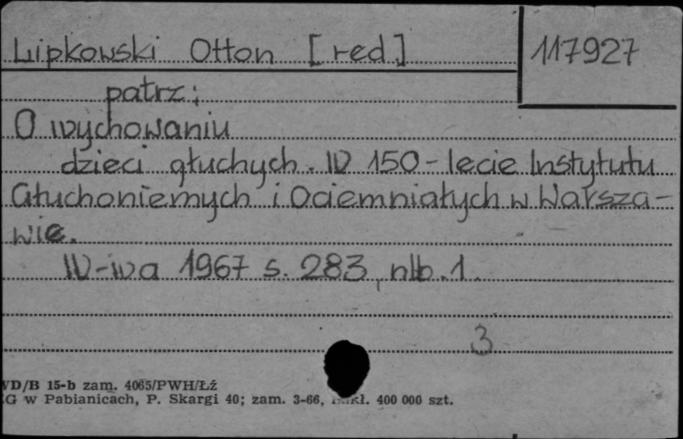 Lipkowski Otton [red] 117927
patrz:
O wychowaniu
dzieci głuchych. W 150-lecie Instytutu
Głuchoniemych i Ociemniałych w Warsza-
wie.
W-wa 1967 s. 283, nlb. 1.
3
WD/B 15-b zam. 4065/PWH/Łź
G w Pabianicach, P. Skargi 40; zam. 3-66, 400 000 szt.